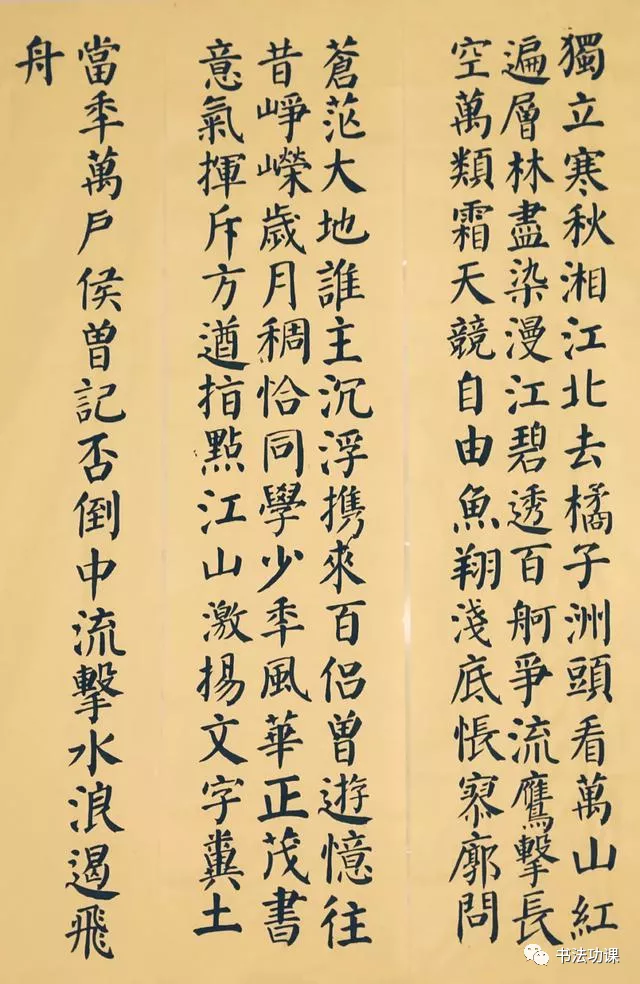 獨立寒秋湘江北去橘子洲頭看萬山紅
遍層林盡染漫江碧透百舸爭流鷹擊長
空萬類霜天競自由魚翔淺底悵寥廓問
蒼茫大地誰主沉浮携來百侣曾遊憶往
昔崢嶸歲月稠恰同學少秊風華正茂書
意氣揮斥方遒指點江山激揚文字糞土
當秊萬户侯曾記否倒中流擊水浪遏飛
舟
书法功课